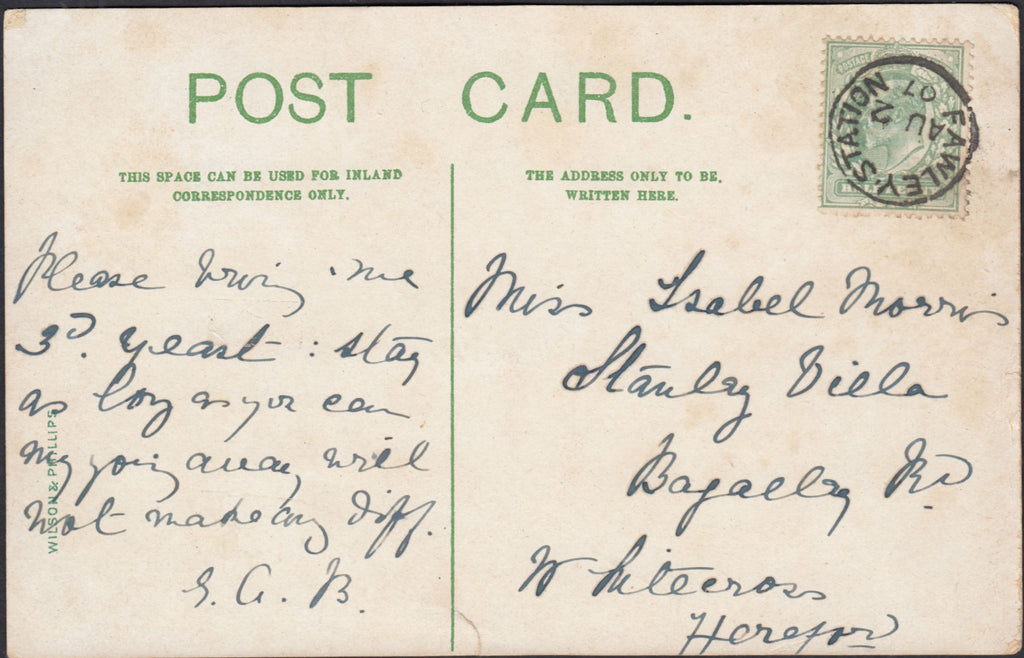 POST CARD.
THIS SPACE CAN BE USED FOR INLAND
CORRESPONDENCE ONLY.
THE ADDRESS ONLY TO BE
WRITTEN HERE.
POSTAGE
FAWLEY STATION
AU 2
07
Please bring me
3D. yeast: stay
as long as you can
my going away will
not make any diff.
WILSON & PHILLIPS
Miss Isabel Morris
Stanley Villa
Rd
Whitecross
Hereford